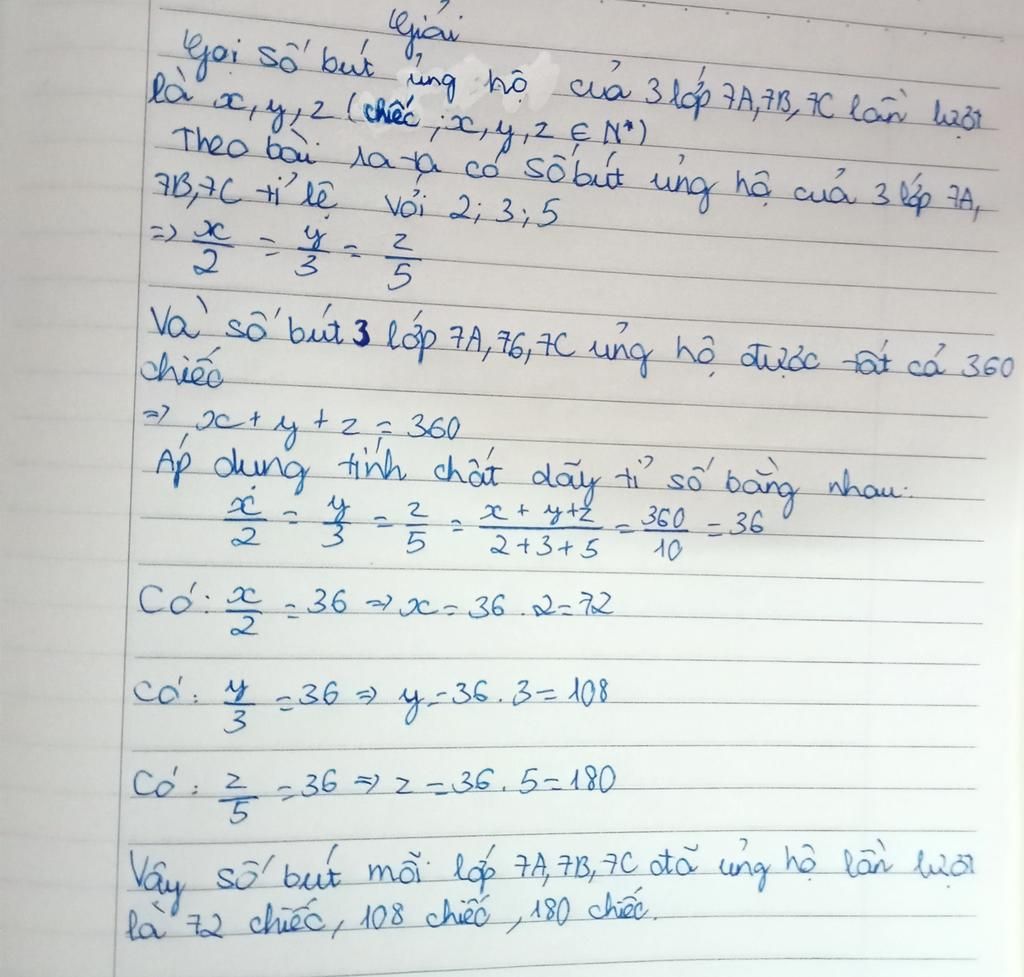 Giải
Gọi số bút ủng hộ của 3 lớp 7A, 7B, 7C lần lượt
là x, y, z (chiếc ; x, y, z ∈ N*)
Theo bài ra ta có số bút ủng hộ của 3 lớp 7A,
7B, 7C tỉ lệ với 2; 3; 5
=> x/2 = y/3 = z/5
Và số bút 3 lớp 7A, 7B, 7C ủng hộ được tất cả 360
chiếc
=> x + y + z = 360
Áp dụng tính chất dãy tỉ số bằng nhau:
x/2 = y/3 = z/5 = (x + y + z)/(2 + 3 + 5) = 360/10 = 36
Có: x/2 = 36 => x = 36 . 2 = 72
Có: y/3 = 36 => y = 36 . 3 = 108
Có: z/5 = 36 => z = 36 . 5 = 180
Vậy số bút mỗi lớp 7A, 7B, 7C đã ủng hộ lần lượt
là 72 chiếc, 108 chiếc, 180 chiếc.